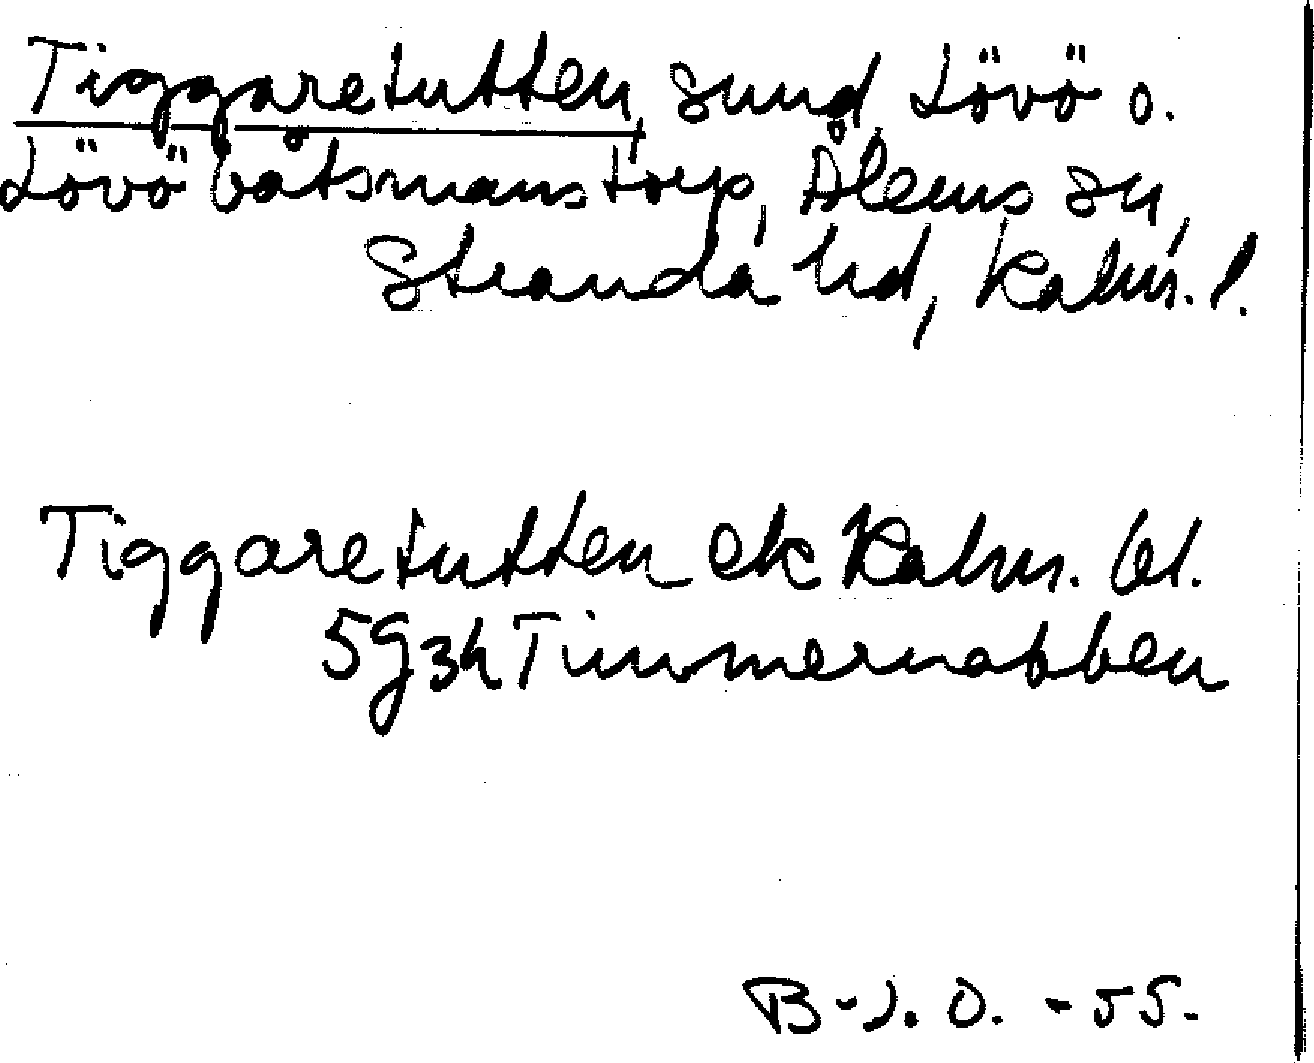 Tiggaretutten, sund, Lövö o.
Lövö båtsmanstorp, Ålems sn,
Stranda hd, Kalm. l.
Tiggaretutten ek Kalm. bl.
5g3h Timmernabben
B-J. O. -55.